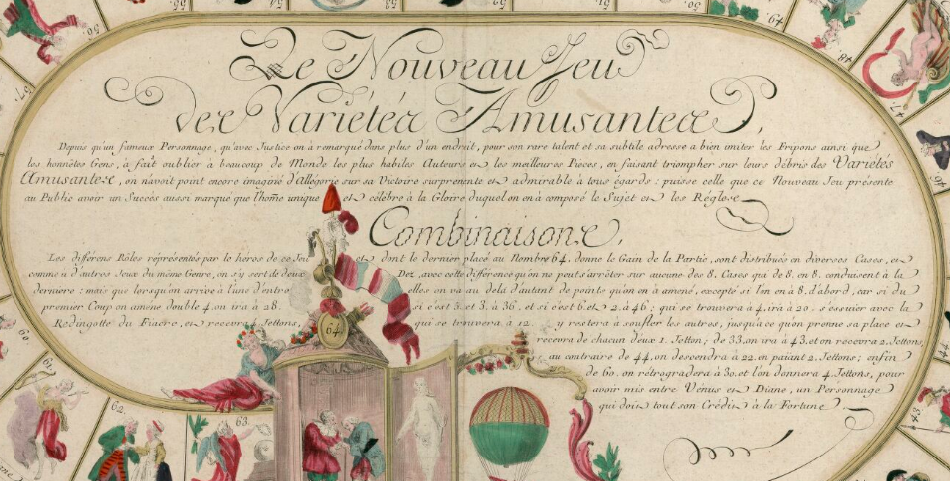 Le Nouveau Jeu
des Variétés Amusantes,
Depuis qu'un fameux Personnage, qu'avec Justice on a remarqué dans plus d'un endroit, pour son rare talent et sa subtile adresse a bien imiter les Fripons ainsi que
les honnêtes Gens, a fait oublier à beaucoup de Monde les plus habiles Auteurs et les meilleures Pieces, en faisant triompher sur leurs débris des Variétés
Amusantes, on n'avoit point encore imaginé d'Allégorie sur sa Victoire surprenente et admirable à tous égards: puisse celle que ce Nouveau Jeu présente
au Public avoir un Succès aussi marqué que l'home unique et célébre à la Gloire duquel on en a composé le Sujet et les Règles
Combinaisons,
Les différens Rôles réprésentés par le héros de ce Jeu et dont le dernier placé au Nombre 64, donne le Gain de la Partie, sont distribués en diverses Cases, et
comme à d'autres Jeux du même Genre, on s'y sert de deux Dez, avec cette différence qu'on ne peut s'arrêter sur aucune des 8. Cases qui de 8. en 8. conduisent à la
derniere: mais que lorsqu'on arrive à l'une d'entre elles on va au delà d'autant de points qu'on en a amené, excepté si l'on en a 8. d'abord, car si du
premier Coup on améne double 4, on ira à 28 si c'est 5. et 3. à 36, et si c'est 6. et 2. à 46; qui se trouvera à 4, ira à 20, s'essuier avec la
Redingotte du Fiacre, et recevra 4. Jettons, qui se trouvera à 12. y restera à souffler les autres, jusqu'à ce qu'on prenne sa place et
recevra de chacun d'eux 1. Jetton; de 33, on ira à 43, et on recevra 2. Jettons,
au contraire de 44, on descendra à 22. en païant 2. Jettons; enfin
de 60, on rétrogradera à 30, et l'on donnera 4. Jettons, pour
avoir mis entre Vénus et Diane, un Personnage
qui doit tout son Crédit à la Fortune
64
62.
63.
61.
60.
57.
56.
55.
54
53
52
51
50.
49.
48.
47.
46
43